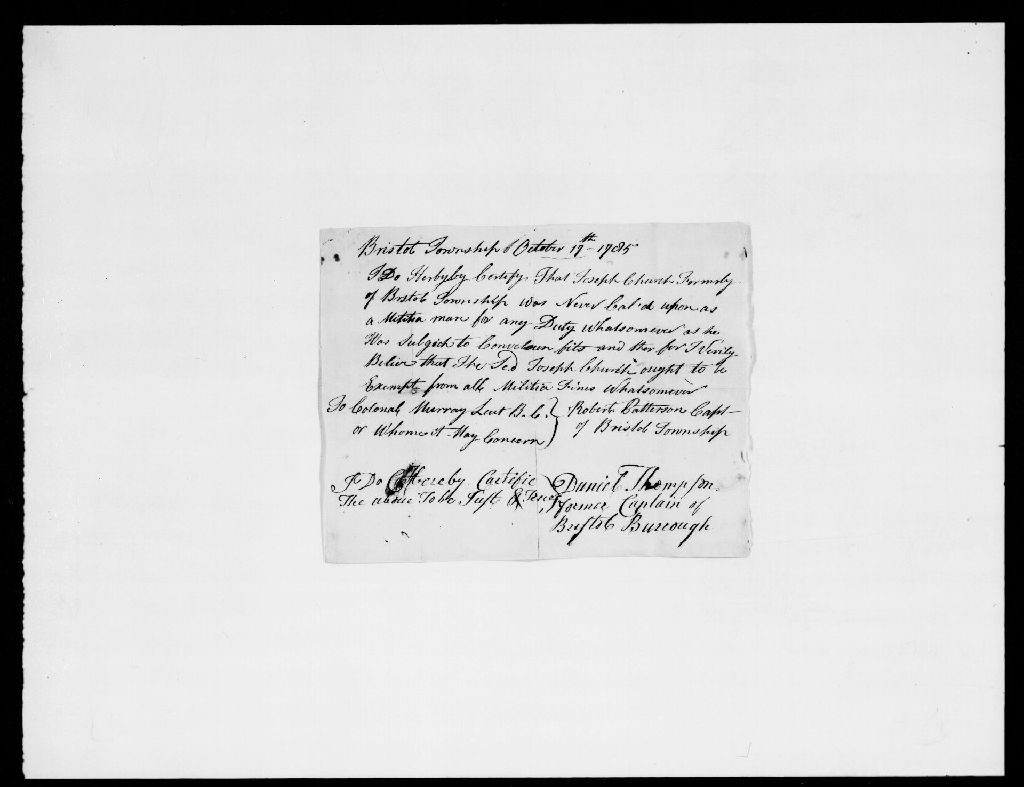 Bristol Township October 17th 1785
I Do Herbyby Certify That Joseph Church Formrly
of Bristol Township was Never Cal'd upon as
a Militia man for any Duty whatsomever as he
Was Subgict to Convelcun fits and ther for I Verily
Believ that The Sed Joseph Church ought to be
Exempt from all Militia Fines Whatsomever
To Colonal Murray Leut B. C. } Robert Patterson Capt
or Whome it May Concern } of Bristol Township
I Do Hereby Cartifie } Daniel Thompson
The above To be Just & True } former Captain of
Bristol Burrough